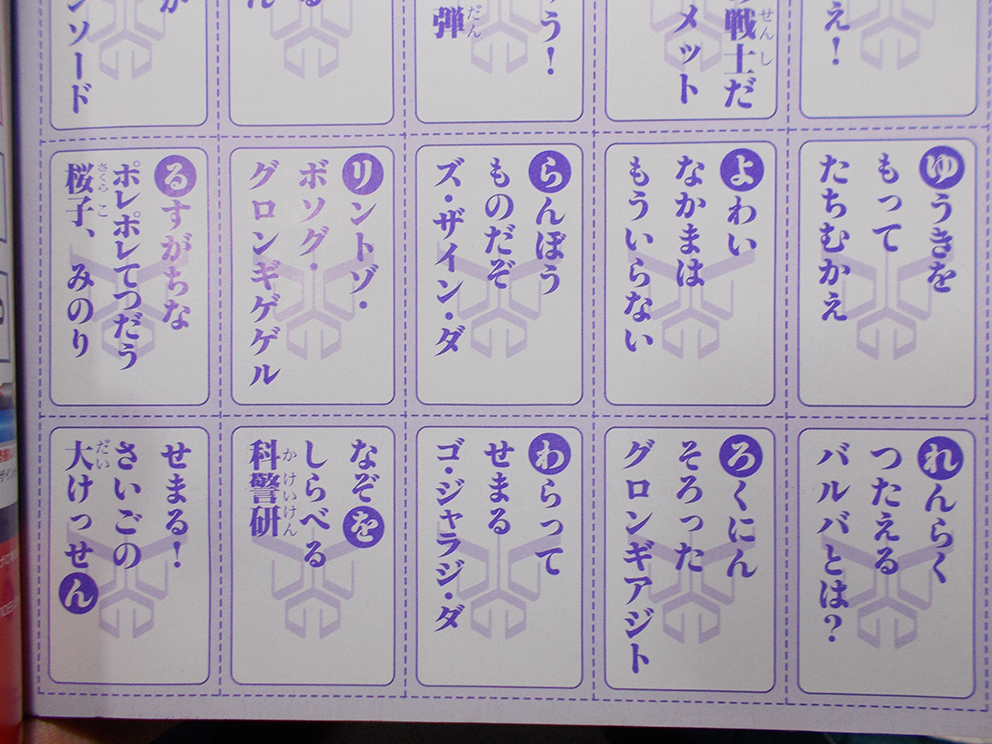 え！
戦士だ
メット
う！
弾
ん
ンソード
ゆうきを
もって
たちむかえ
よわい
なかまは
もういらない
らんぼう
ものだぞ
ズ・ザイン・ダ
リントゾ・
ボソグ・
グロンギゲゲル
るすがちな
ポレポレてつだう
桜子、みのり
れんらく
つたえる
バルバとは？
ろくにん
そろった
グロンギアジト
わらって
せまる
ゴ・ジャラジ・ダ
なぞを
しらべる
科警研
せまる！
さいごの
大けっせん